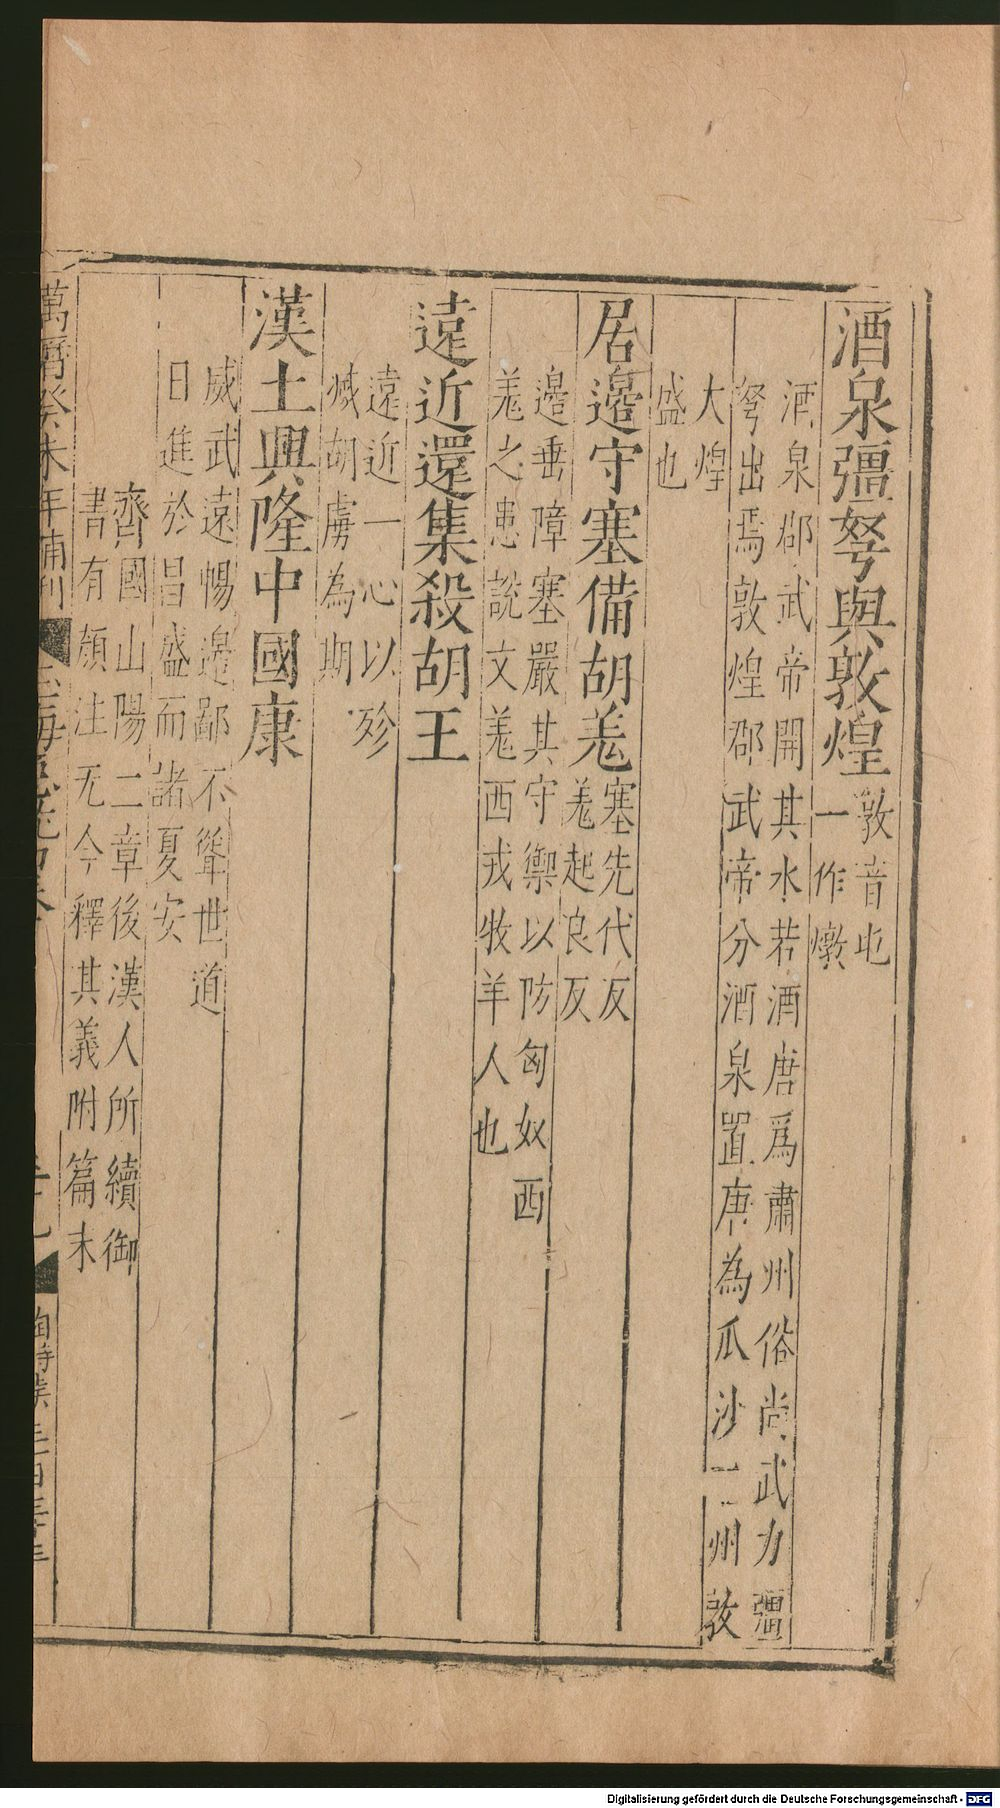 酒泉彊弩與敦煌敦音屯
一作燉
酒泉郡武帝開其水若酒唐爲肅州俗尚武力彊
弩出焉敦煌郡武帝分酒泉置唐為瓜沙二州敦
大煌
盛也
居邊守塞備胡羌塞先代反
羌起良反
邊垂障塞嚴其守禦以防匈奴西
羌之患說文羌西戎牧羊人也
遠近還集殺胡王
遠近一心以殄
滅胡虜為期
漢土興隆中國康
威武遠暢邊鄙不聳世道
日進於昌盛而諸夏安
齊國山陽二章後漢人所續御
書有顏注无今釋其義附篇末
萬曆癸未年補刊
Digitalisierung gefördert durch die Deutsche Forschungsgemeinschaft - DFG